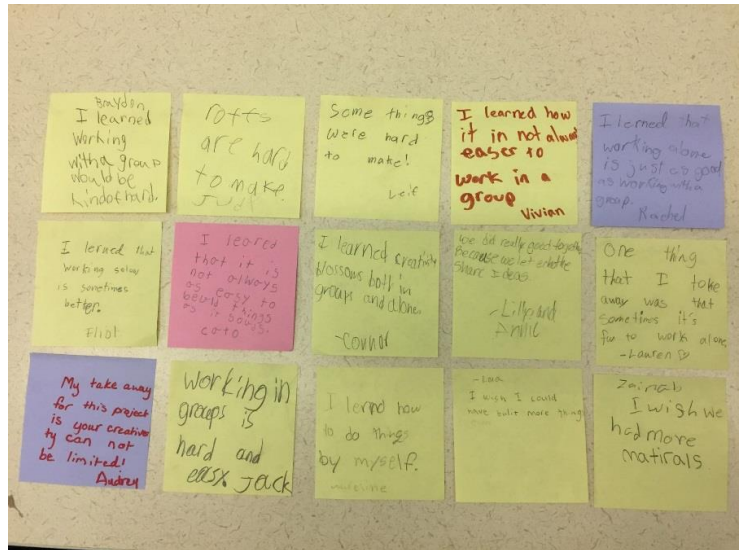 Braydon
I learned
working
with a group
would be
kind of hard.
rotts
are hard
to make.
Judi
Some things
were hard
to make!
Leif
I learned how
it in not always
easer to
work in a
group
Vivian
I lerned that
working alone
is just as good
as working with a
group.
Rachel
I lerned that
working solow
is sometimes
better.
Eliot
I leared
that it is
not always
as easy to
beuld things
as it souds.
cato
I learned creativity
blossoms both in
groups and alone.
-Connor
we did really good together
Because we let each other
share I deas.
-Lilly and
One thing
that I take
away was that
sometimes it's
fun to work alone.
-Lauren ♡
My take away
for this project
is your creativi
ty can not
be limited!
Audrey
working in
groups is
hard and
easy. Jack
I lernd how
to do things
by myself.
madeline
-Lola
I wish I could
have bulit more things
Zainab
I wish we
had more
matirals